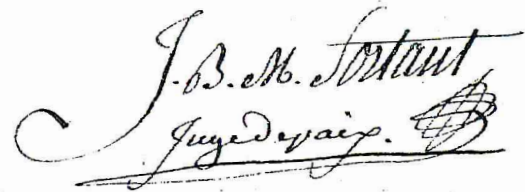 J. B. M. Sortant
Juge de paix.